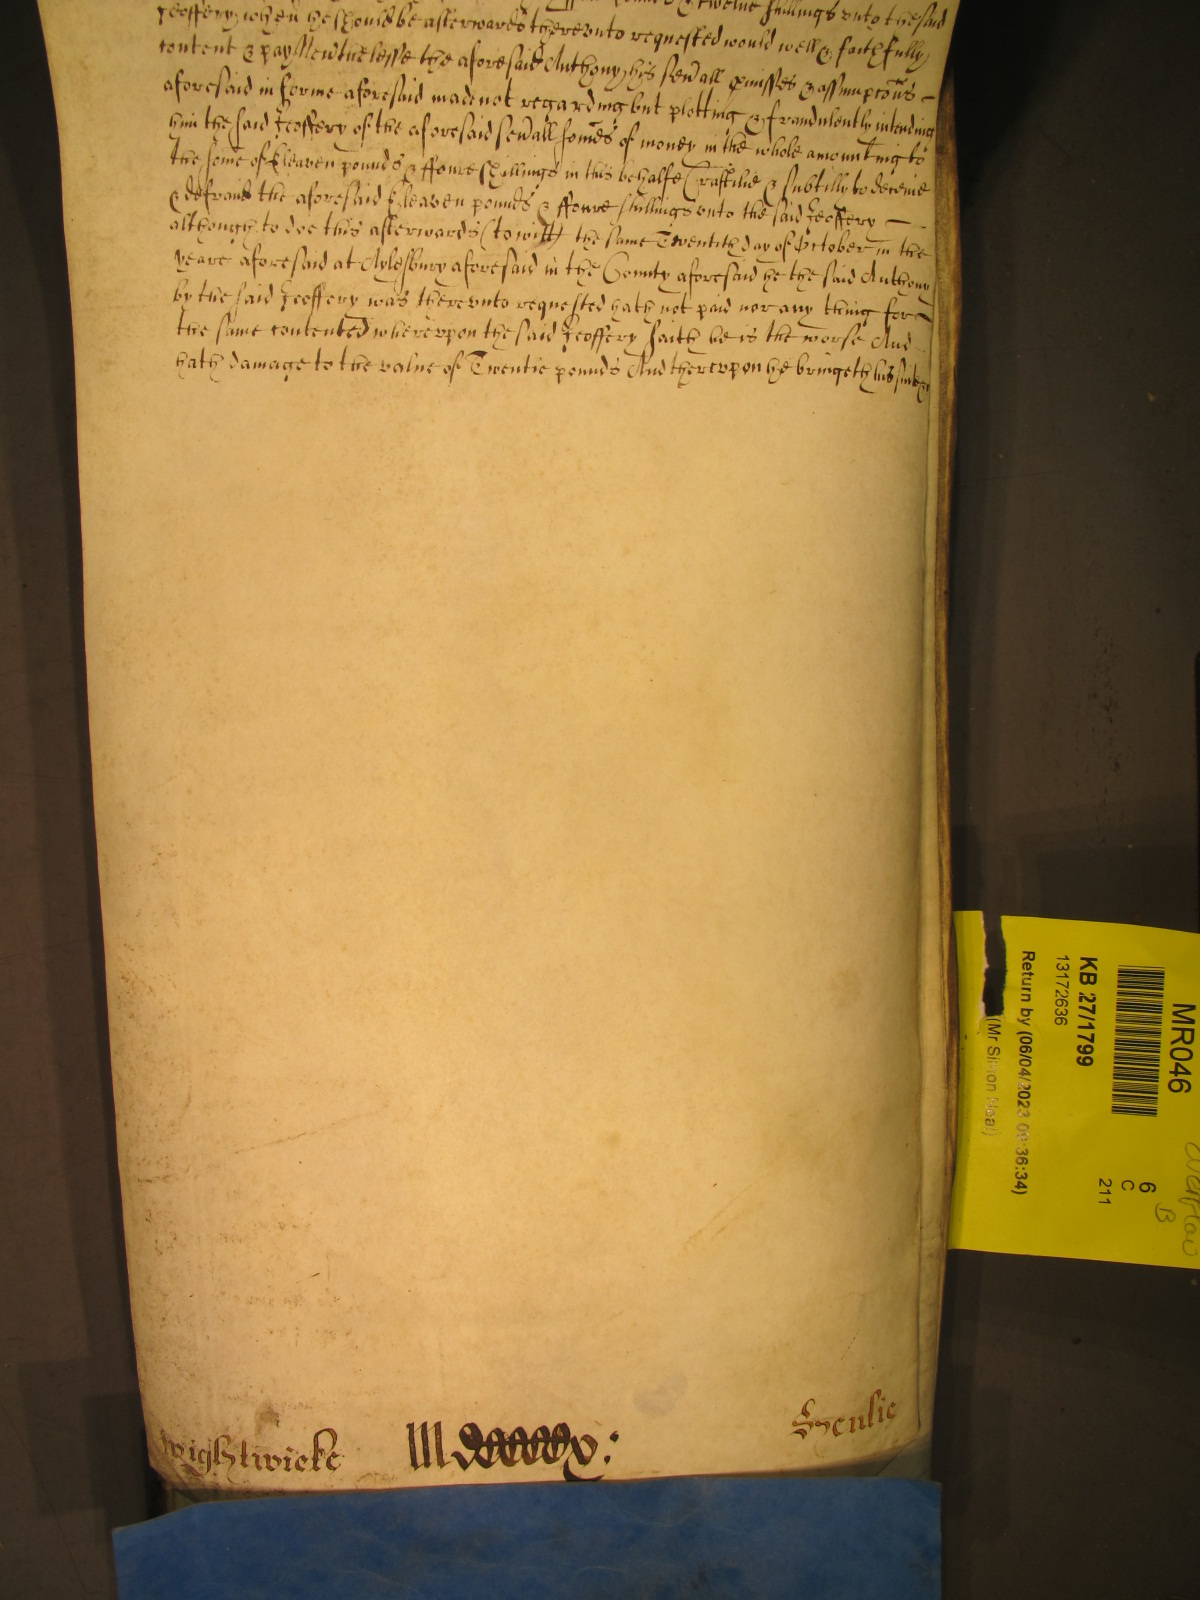 twelve shillings vnto the said
Jeoffery when he should be afterwards therevnto requested would well & faithfully
content & pay Nevertheless the aforesaid Anthony his sevall pmisses & assumpcons
aforesaid in forme aforesaid made not regarding but plotting & fraudulently intending
him the said Jeoffery of the aforesaid sevall somes of money in the whole amounting to
the some of Eleaven pounds & ffoure shillings in this behalfe Craftilie & subtilly to deceive
& defraud the aforesaid Eleaven pounds & ffoure shillings vnto the said Jeoffery
although to doe this afterwards (to witt) the same Twentith day of October in the
yeare aforesaid at Aylesbury aforesaid in the County aforesaid he the said Anthony
by the said Jeoffery was therevnto requested hath not paid nor any thing for
the same contented wherevpon the said Jeoffery saith he is the worse And
hath damage to the value of Twentie pounds And therevpon he bringeth his suite &c
Wightwicke
Henlie
MR046
KB 27/1799
13172636
Return by (06/04/2023 09:36:34)
(Mr Simon Neal)
6
C
211
B